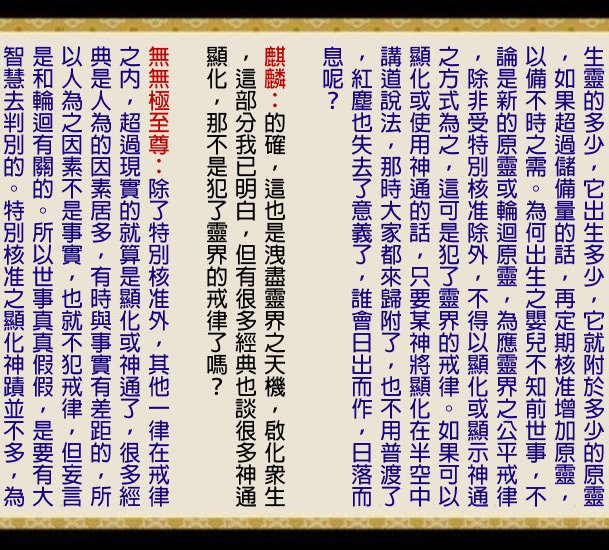 生靈的多少，它出生多少，它就附於多少的
，如果超過儲備量的話，再定期核准增加原靈，
以備不時之需。為何出生之嬰兒不知前世事，不
論是新的原靈或輪迴原靈，為應靈界之公平戒律
，除非受特別核准除外，不得以顯化或顯示神通
之方式為之，這可是犯了靈界的戒律。如果可以
顯化或使用神通的話，只要某神將顯化在半空中
講道說法，那時大家都來歸附了，也不用普渡了
，紅塵也失去了意義了，誰會日出而作，日落而
息呢？
麒麟：的確，這也是洩盡靈界之天機，啟化衆生
，這部分我已明白，但有很多經典也談很多神通
顯化，那不是犯了靈界的戒律了嗎？
無無極至尊：除了特別核准外，其他一律在戒律
之內，超過現實的就算是顯化或神通了，很多經
典是人為的因素居多，有時與事實有差距的，所
以人為之因素不是事實，也就不犯戒律，但妄言
是和輪迴有關的。所以世事真真假假，是要有大
智慧去判別的。特別核准之顯化神蹟並不多，為